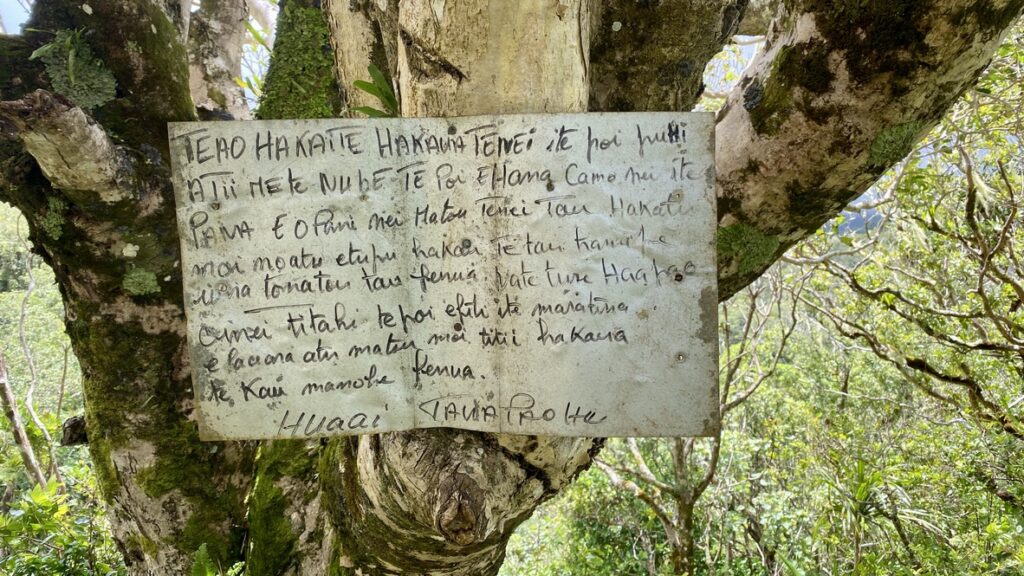 TEAO HAKAITE HAKAUA TENEI ite poi puhi
ATii ME te NUPE TE Poi EHana Camo nei ite
PAVA E OPani nei Matou Tenei Tau Hakatu
moi moatu etupu hakaii Te tau hana pe
una tonatou tau fenua. Vate ture Haapao
Titahi te poi efiti ite maratina.
e lauana atu matou moi titii hakaua
te Kaii manohe fenua.
HUAAI TAUATAOHU